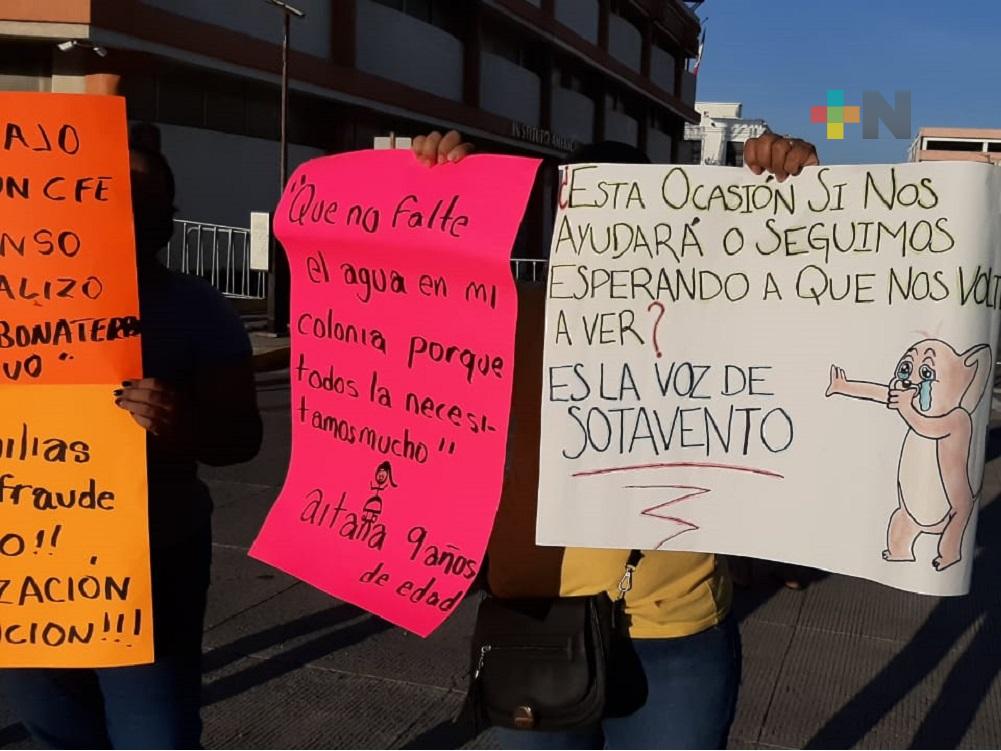 AJO
UN CFE
NSO
ALIZO
BONATERRA
VO"
milias
fraude
O!!
ZACIÓN
UCION!!!
"Que no falte
el agua en mi
colonia porque
todos la necesi-
tamos mucho"
aitana 9 años
de edad
¿ESTA OCASIÓN SI NOS
AYUDARÁ O SEGUIMOS
ESPERANDO A QUE NOS VOLT
A VER?
ES LA VOZ DE
SOTAVENTO
INSTITUTO
+N